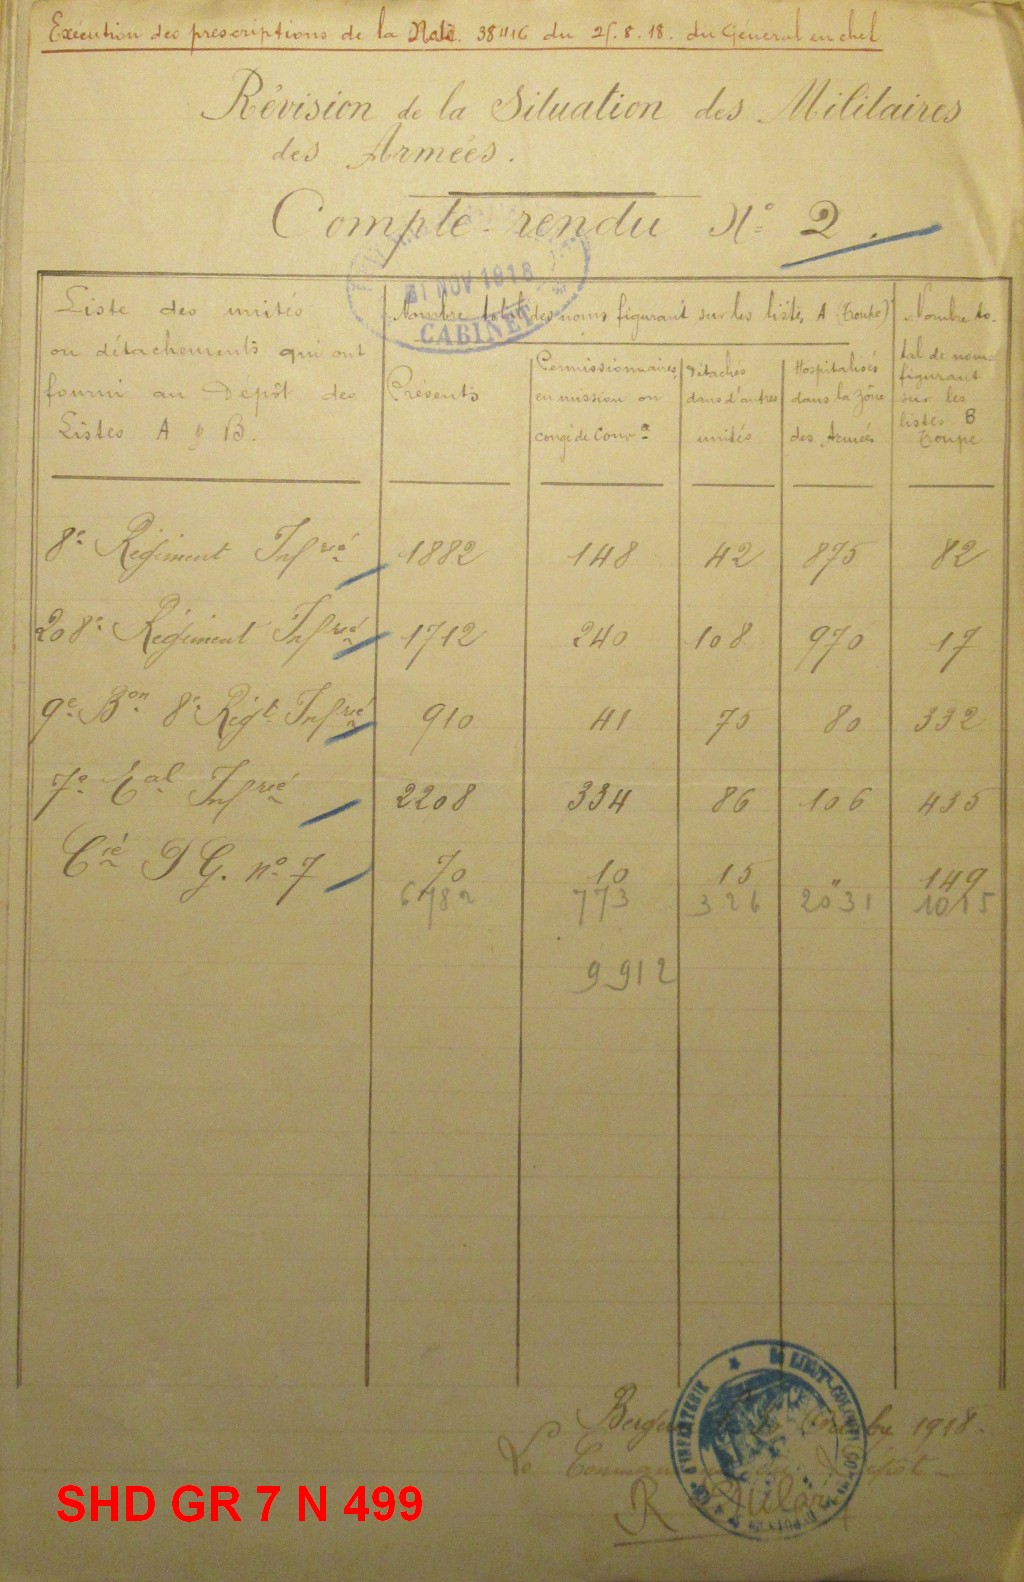 Exécution des prescriptions de la Note 38416 du 25.8.18. du Général en chef
Révision de la Situation des Militaires
des Armées.
Compte-rendu N° 2.
NOV 1918
CABINET
Liste des unités
ou détachements qui ont
fourni au Depôt des
Listes A & B.
Nombre total des noms figurant sur les listes A (Troupe)
Présents
Permissionnaires,
en mission ou
congé de Conv.ce
Détachés
dans d'autres
unités
Hospitalisés
dans la zône
des Armées
Nombre to-
tal de noms
figurant
sur les
listes B
Troupe
8e Régiment Infrie 1882 148 42 875 82
208e Régiment Infrie 1712 240 108 970 17
9e Bon 8e Régt Infrie 910 41 75 80 332
7e Eal Infrie 2208 334 86 106 435
Cie P G. n° 7 70 10 15 " 149
6782 773 326 2031 1015
9912
1918.
Le Commandant du Dépôt
LIEUT-COLONEL
D'INFANTERIE
SHD GR 7 N 499